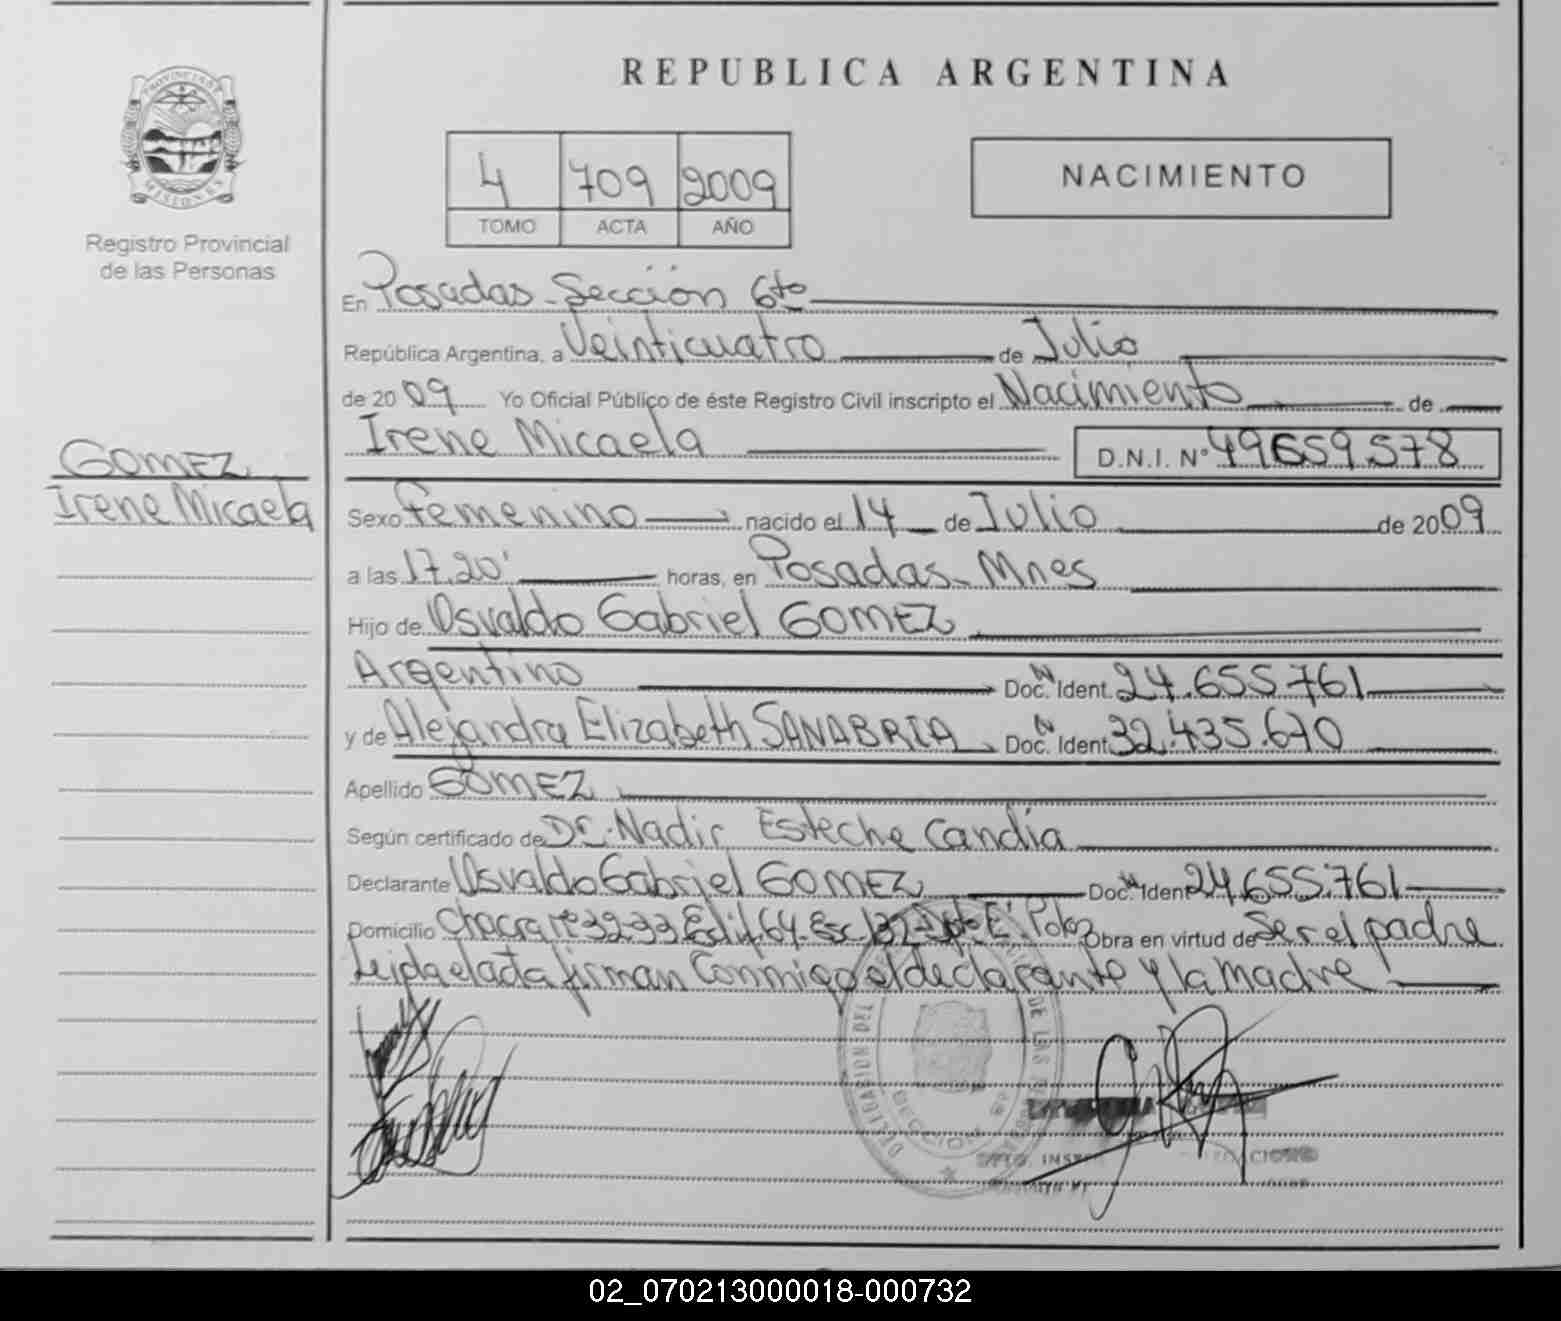 PROVINCIA DE
MISIONES
Registro Provincial
de las Personas
GOMEZ
Irene Micaela
REPUBLICA ARGENTINA
4 709 2009
TOMO ACTA AÑO
NACIMIENTO
En Posadas - Sección 6ta
República Argentina, a Veinticuatro de Julio
de 2009 Yo Oficial Público de éste Registro Civil inscripto el Nacimiento de
Irene Micaela D.N.I. N° 49659.578
Sexo femenino nacido el 14 de Julio de 2009
a las 17.20' horas, en Posadas - Mnes
Hijo de Osvaldo Gabriel GOMEZ
Argentino Doc. Ident. 24.655.761
y de Alejandra Elizabeth SANABRIA Doc. Ident. 32.435.670
Apellido GOMEZ
Según certificado de Dr. Nadir Esteche Candia
Declarante Osvaldo Gabriel GOMEZ Doc. Ident 24.655.761
Domicilio Chacra n° 32-33 Edif. 64. Esc. Obra en virtud de Ser el padre
Leida el acta firman Conmigo el declarante y la madre
DELEGACION DEL DE LAS
SECCION
DPTO.
02_070213000018-000732